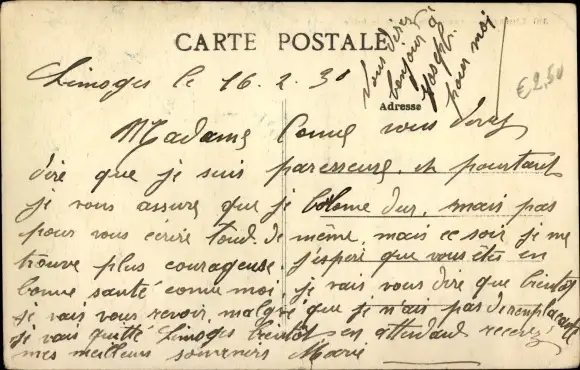 CARTE POSTALE
Adresse
Vous direz
bonjour à
Joseph.
pour moi
€2,50
Limoges le 16.2.30
Madame Comme vous devez
dire que je suis paresseuse, et pourtant
je vous assure que je boulonne dur, mais pas
pour vous écrire tout de même, mais ce soir je me
trouve plus courageuse j'espère que vous êtes en
bonne santé comme moi, je vais vous dire que bientôt
je vais vous revoir, malgré que je n'ais pas de remplaçante
je vais quitté Limoges bientôt en attendant recevez
mes meilleurs souvenirs Marie